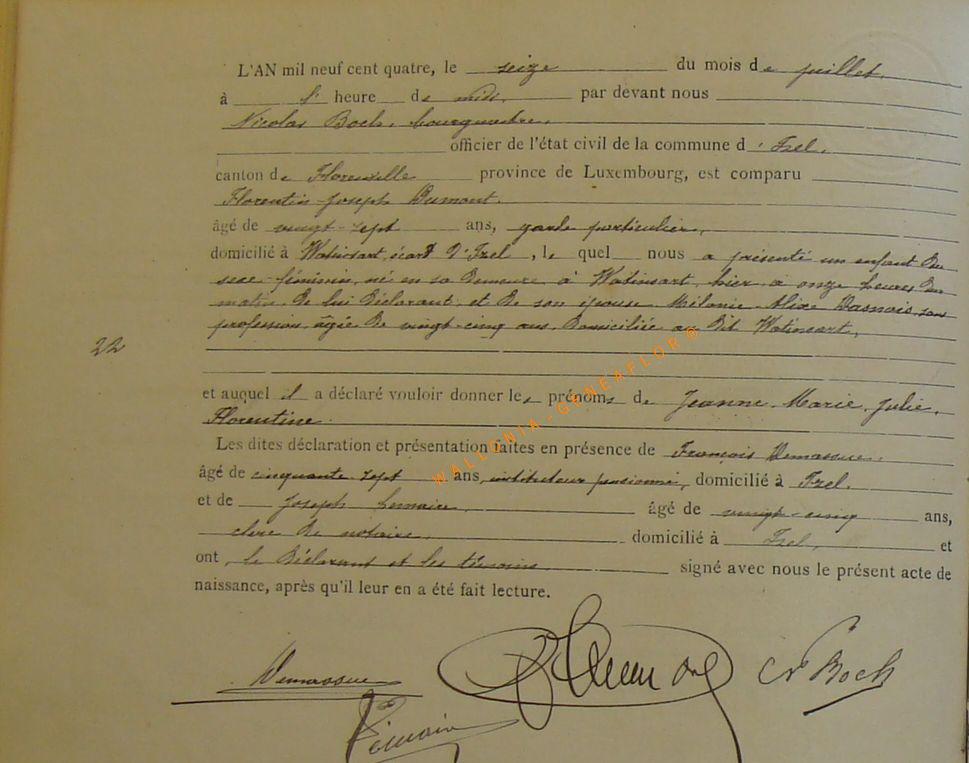 L'AN mil neuf cent quatre, le seize du mois de juillet,
à l' heure de midi, par devant nous
Nicolas Boch, bourgmestre,
officier de l'état civil de la commune d'Izel,
canton de Florenville province de Luxembourg, est comparu
Florentin Joseph Dumont
âgé de vingt-sept ans, garde particulier,
domicilié à Watinsart, écart d'Izel, le quel nous a présenté un enfant du
sexe féminin, né en sa demeure à Watinsart, hier à onze heures du
matin, de lui déclarant et de son épouse Mélanie Alixe sans
profession, âgée de vingt-cinq ans, domiciliée au dit Watinsart,
22
et auquel il a déclaré vouloir donner les prénoms de Jeanne Marie Julie
Florentine.
Les dites déclaration et présentation faites en présence de François Demasseue
âgé de cinquante sept ans, instituteur pensionné, domicilié à Izel.
et de Joseph Lemaire âgé de vingt-cinq ans,
clerc de notaire domicilié à Izel, et
ont, le déclarant et les témoins signé avec nous le présent acte de
naissance, après qu'il leur en a été fait lecture.
WALLONIA-GENEAFLOR©
Demasseue
N Boch